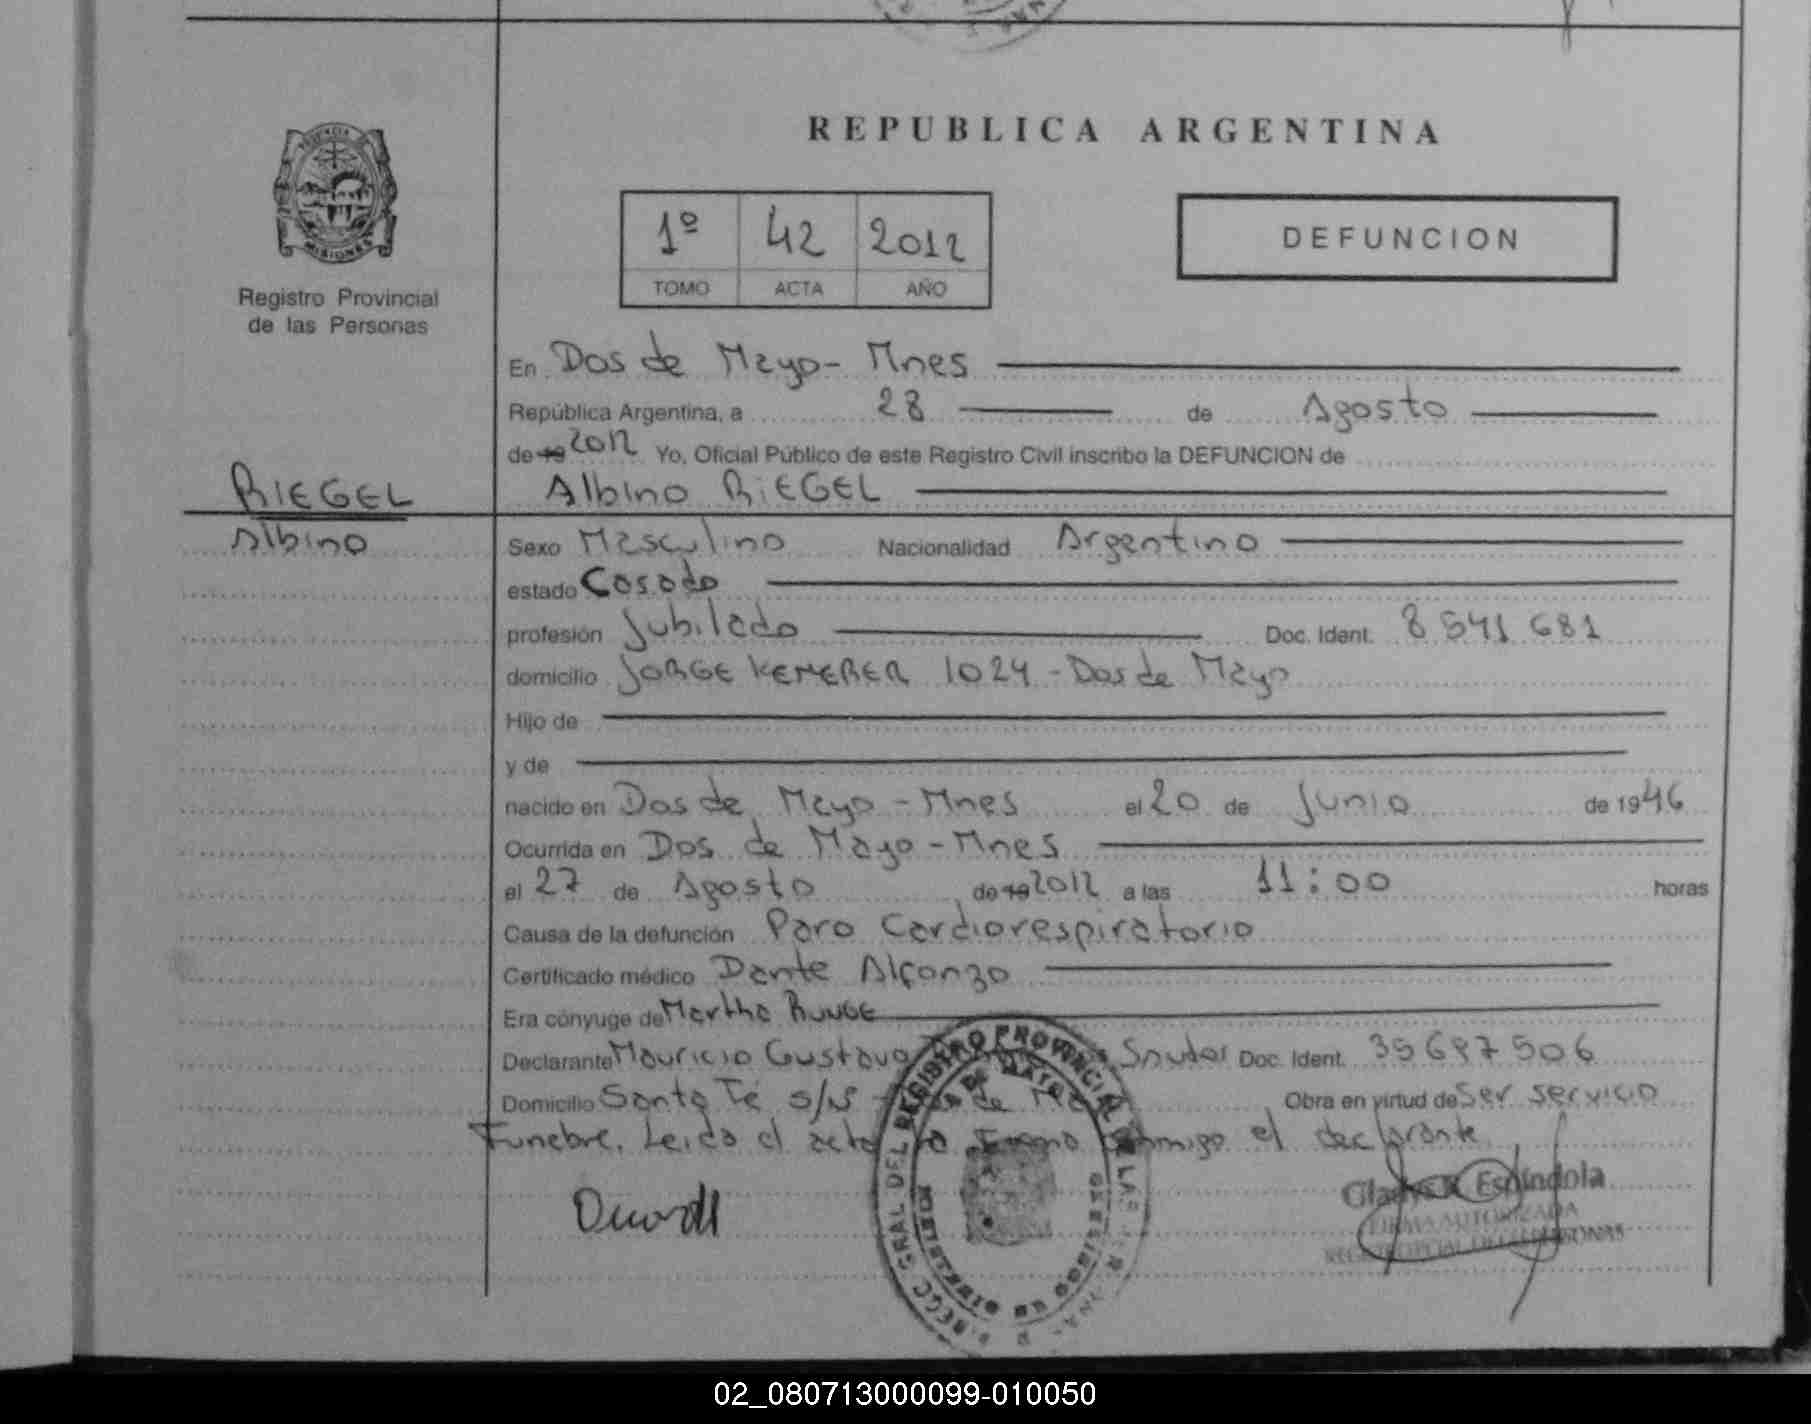 REPUBLICA ARGENTINA
PROVINCIA
MISIONES
Registro Provincial
de las Personas
1º 42 2012
TOMO ACTA AÑO
DEFUNCION
En Dos de Mayo - Mnes
República Argentina, a 28 de Agosto
de 19 2012 Yo, Oficial Público de este Registro Civil inscribo la DEFUNCION de
RIEGEL
Albino RIEGEL
Albino
Sexo Masculino Nacionalidad Argentino
estado Casado
profesión Jubilado Doc. Ident. 8 541 681
domicilio JORGE KEMERER 1024 - Dos de Mayo
Hijo de
y de
nacido en Dos de Mayo - Mnes el 20 de Junio de 1946
Ocurrida en Dos de Mayo - Mnes
el 27 de Agosto de 19 2012 a las 11:00 horas
Causa de la defunción Paro Cardiorespiratorio
Certificado médico Dante Alfonzo
Era cónyuge de Martha RUNGE
Declarante Mauricio Gustavo Doc. Ident. 35 697 506
Domicilio Santa Fé s/N - Dos de Mayo Obra en virtud de Ser servicio
Funebre. Leida el acta la Firma conmigo el declarante
REGISTRO PROVINCIAL DE LAS
Gladys Espíndola
FIRMA AUTORIZADA
02_080713000099-010050